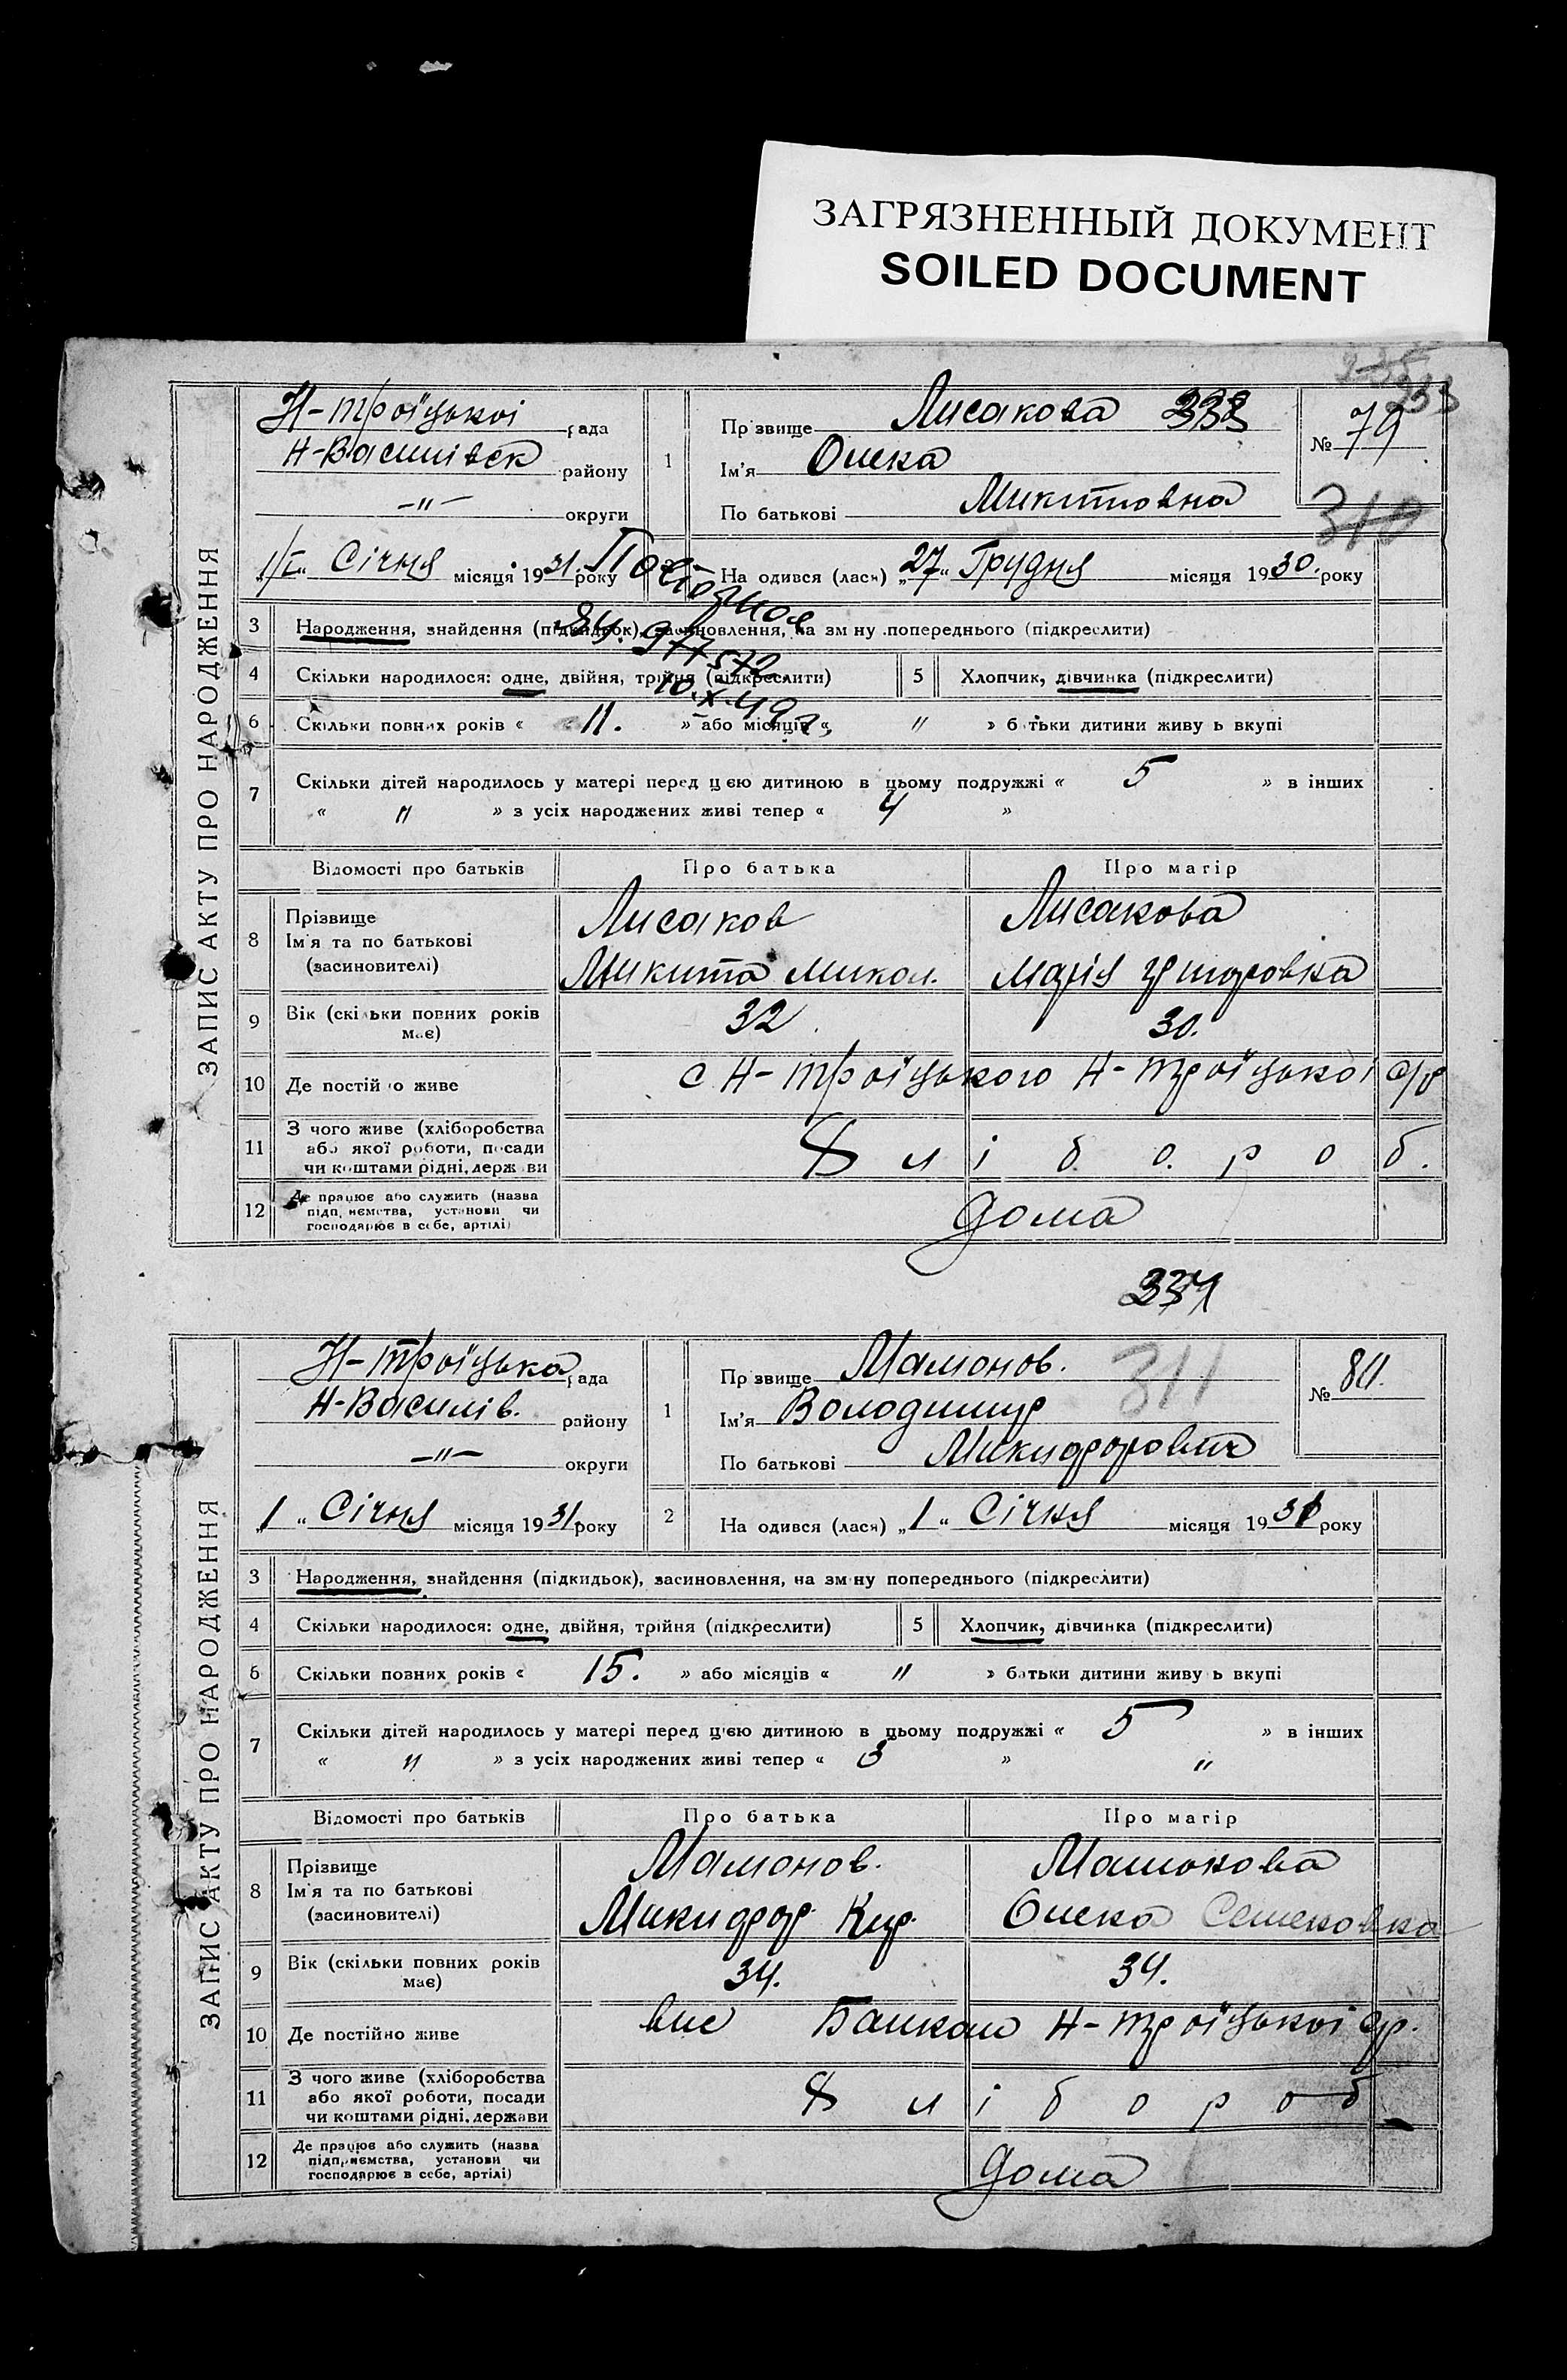 ЗАГРЯЗНЕННЫЙ ДОКУМЕНТ
SOILED DOCUMENT
ЗАПИС АКТУ ПРО НАРОДЖЕННЯ
Н-Троїцької рада
Н-Василівск району
—"— округи
1
Прізвище Лисакова 333
Ім'я Олена
По батькові Микитовна
№ 79
310
"1/I" Січня місяця 1931 року
На одився (лася) "27" Грудня місяця 1930. року
84. 977 572
10.X.49 г.
3 Народження, знайдення (підкидьок), засиновлення, на зміну попереднього (підкреслити)
4 Скільки народилося: одне, двійня, трійня (підкреслити)
5 Хлопчик, дівчинка (підкреслити)
6 Скільки повних років « 11. » або місяців « " » батьки дитини живуть вкупі
7 Скільки дітей народилось у матері перед цією дитиною в цьому подружжі « 5 » в інших
« " » з усіх народжених живі тепер « 4 »
Відомості про батьків Про батька Про матір
8 Прізвище
Ім'я та по батькові
(засиновителі)
Лисаков
Микита Микол.
Лисакова
Марія
9 Вік (скільки повних років має) 32 30.
10 Де постійно живе с Н-Троїцького Н-Троїцької с/р
11 З чого живе (хліборобства
або якої роботи, посади
чи коштами рідні, держави
Хлібороб.
12 Де працює або служить (назва
підприємства, установи чи
господарює в себе, артілі)
дома
334
ЗАПИС АКТУ ПРО НАРОДЖЕННЯ
Н-Троїцька рада
Н-Василів. району
—"— округи
1
Прізвище Мамонов.
Ім'я Володимир
По батькові Микифорович
311
№ 80.
"1" Січня місяця 1931 року
2 На одився (лася) "1" Січня місяця 1931 року
3 Народження, знайдення (підкидьок), засиновлення, на зміну попереднього (підкреслити)
4 Скільки народилося: одне, двійня, трійня (підкреслити)
5 Хлопчик, дівчинка (підкреслити)
6 Скільки повних років « 15. » або місяців « " » батьки дитини живуть вкупі
7 Скільки дітей народилось у матері перед ц'єю дитиною в цьому подружжі « 5 » в інших
« " » з усіх народжених живі тепер « 3 » "
Відомості про батьків Про батька Про матір
8 Прізвище
Ім'я та по батькові
(засиновителі)
Мамонов.
Микифор Кир.
Мамонова
Олена Семеновна
9 Вік (скільки повних років має) 34. 34.
10 Де постійно живе Н-Троїцької с/р.
11 З чого живе (хліборобства
або якої роботи, посади
чи коштами рідні, держави
Хлібороб
12 Де працює або служить (назва
підприємства, установи чи
господарює в себе, артілі)
дома